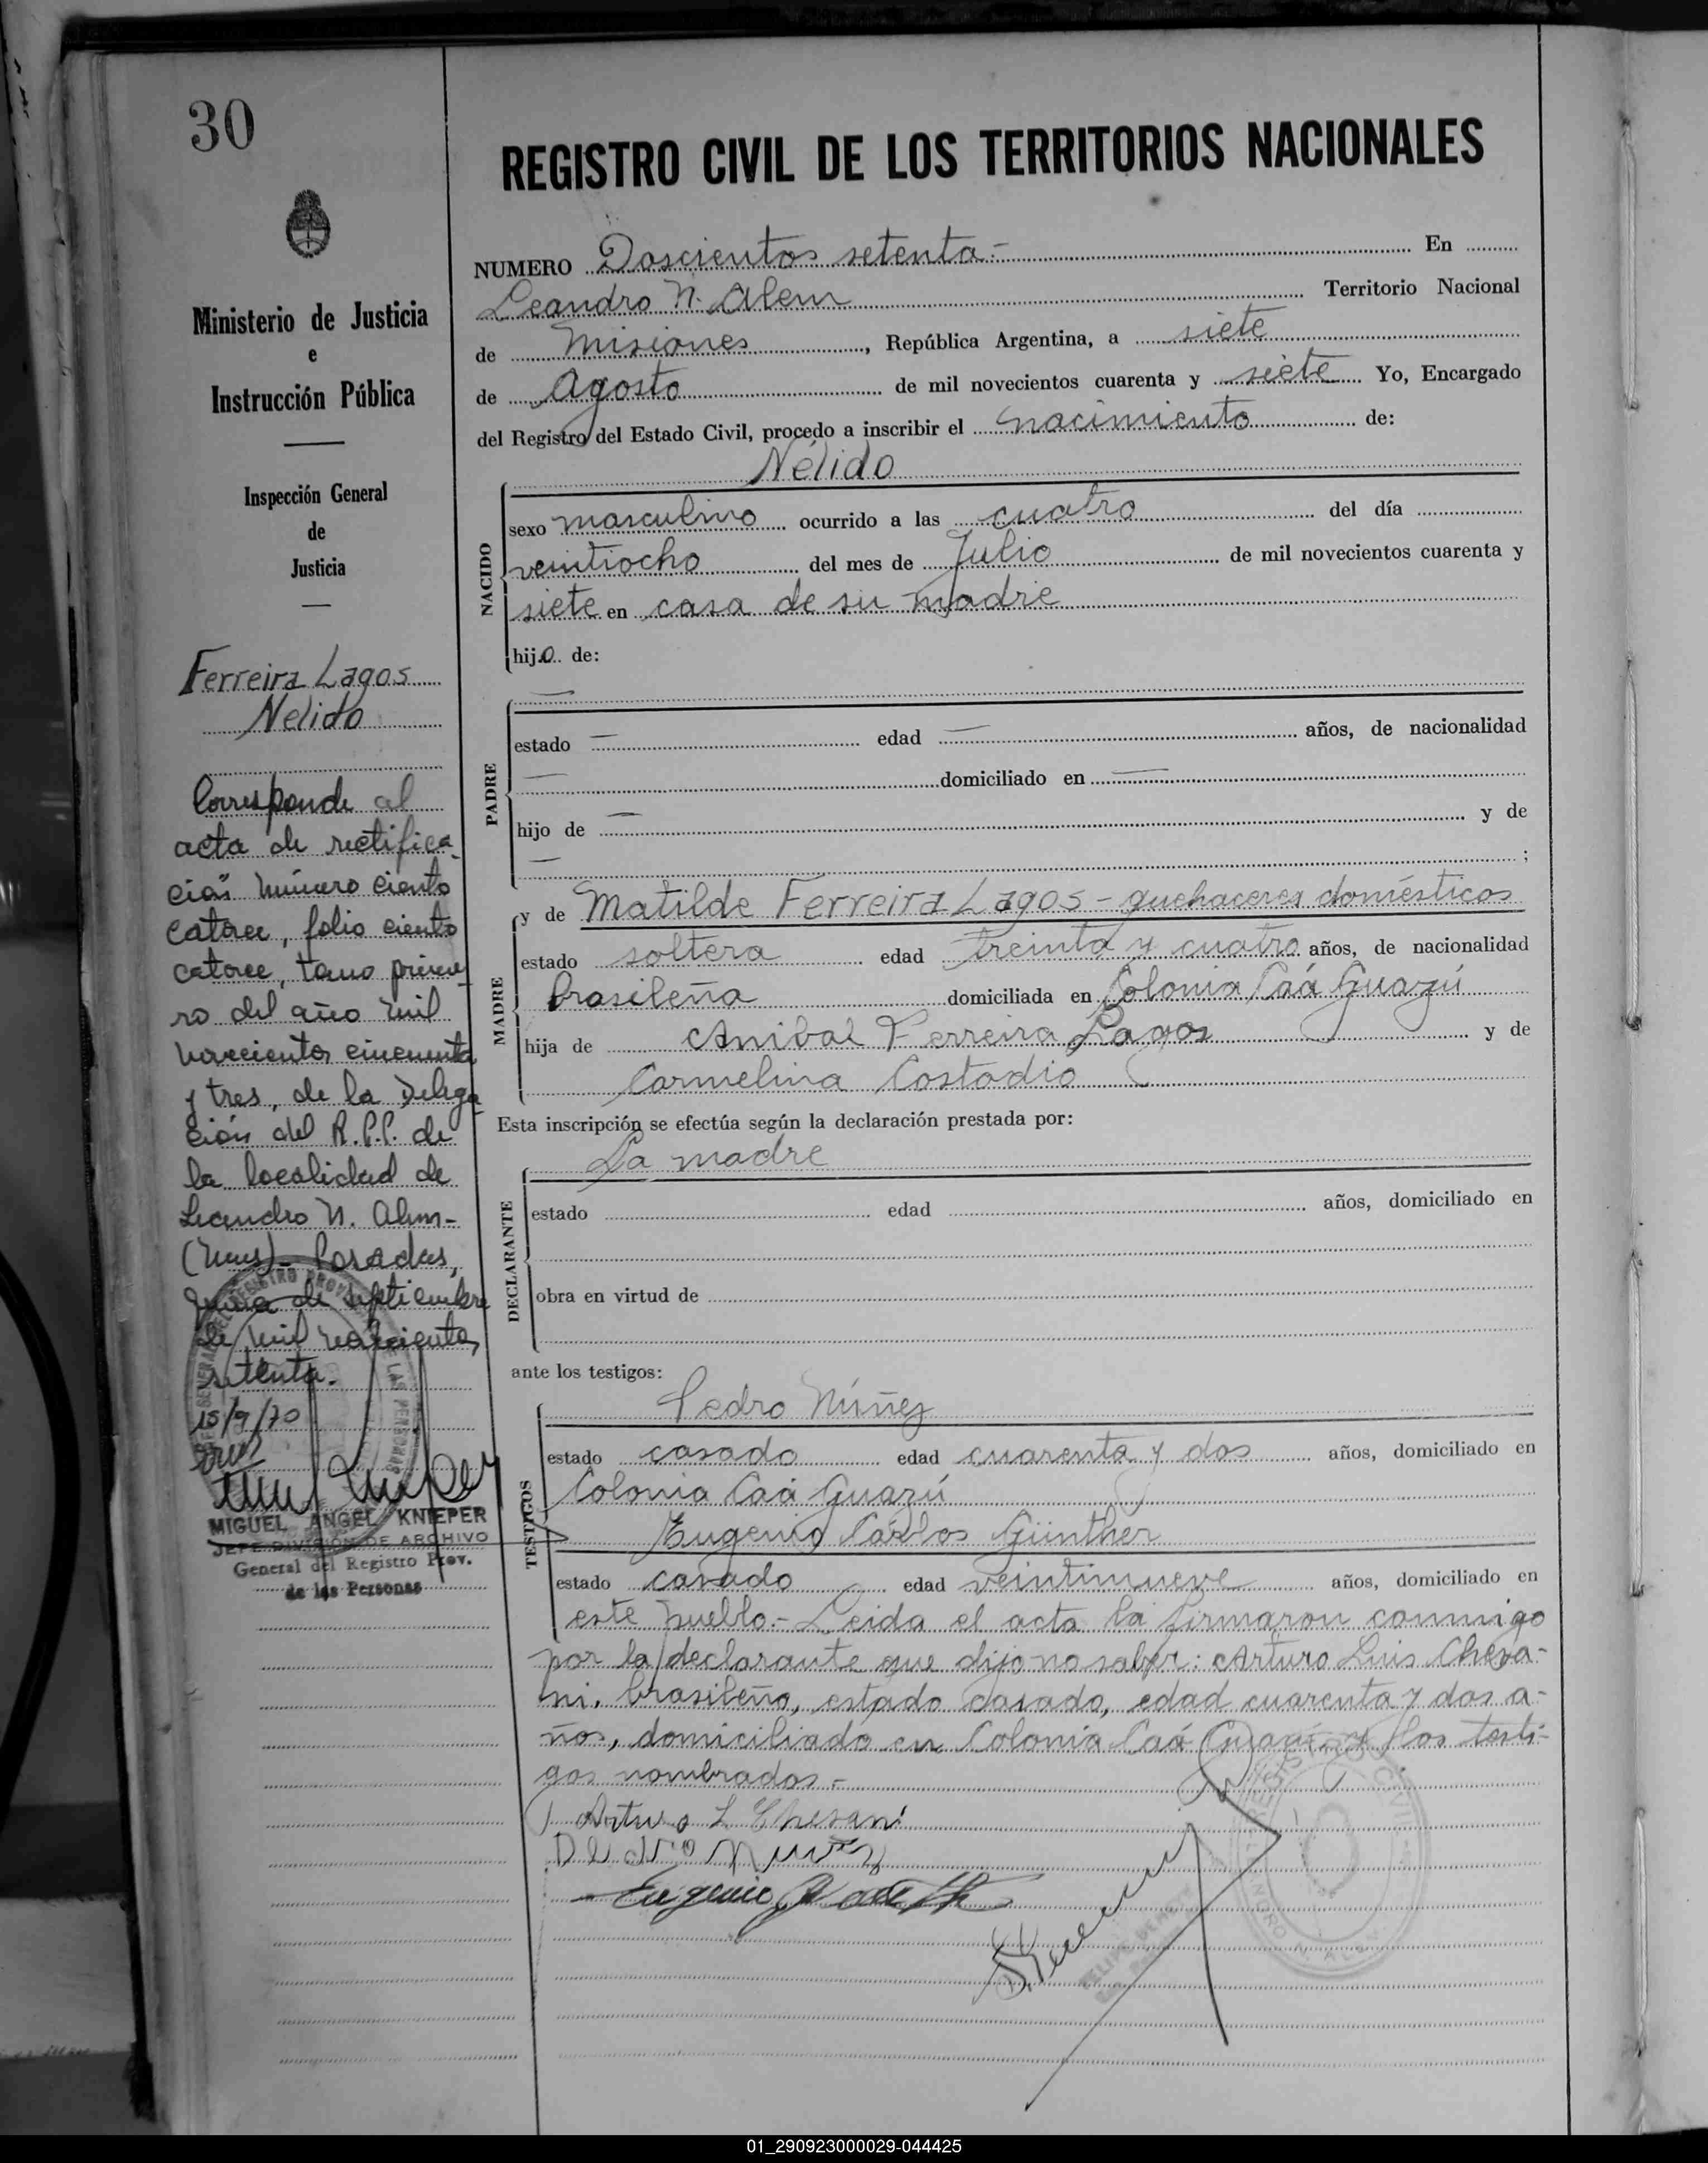 30
REGISTRO CIVIL DE LOS TERRITORIOS NACIONALES
Ministerio de Justicia
e
Instrucción Pública
Inspección General
de
Justicia
Ferreira Lagos
Nelido
Corresponde al
acta de rectifica
ción número ciento
catorce, folio ciento
catorce, tomo prime
ro del año mil
novecientos cincuenta
y tres, de la Delega
ción del R.P.P. de
la localidad de
Leandro N. Alem-
(Mnes)- Posadas,
quince de septiembre
de mil novecientos
setenta.
15/9/70
MIGUEL ANGEL KNIEPER
JEFE DIVISIÓN DE ARCHIVO
General del Registro Prov.
de las Personas
NUMERO Doscientos setenta.- En
Leandro N. Alem Territorio Nacional
de Misiones, República Argentina, a siete
de Agosto de mil novecientos cuarenta y siete Yo, Encargado
del Registro del Estado Civil, procedo a inscribir el nacimiento de:
Nélido
NACIDO
sexo masculino ocurrido a las cuatro del día
veintiocho del mes de Julio de mil novecientos cuarenta y
siete en casa de su madre
hijo de:
PADRE
estado — edad — años, de nacionalidad
— domiciliado en —
hijo de — y de
— ;
MADRE
y de Matilde Ferreira Lagos - quehaceres domésticos
estado soltera edad treinta y cuatro años, de nacionalidad
brasileña domiciliada en Colonia Caá Guazú
hija de Anibal Ferreira Lagos y de
Carmelina Costodio
Esta inscripción se efectúa según la declaración prestada por:
La madre
DECLARANTE
estado edad años, domiciliado en
obra en virtud de
ante los testigos:
Pedro Núñez
TESTIGOS
estado casado edad cuarenta y dos años, domiciliado en
Colonia Caá Guazú
Eugenio Carlos Günther
estado casado edad veintinueve años, domiciliado en
este pueblo.- Leida el acta la firmaron conmigo
por la declarante que dijo no saber: Arturo Luis Chesa-
ni, brasileño, estado casado, edad cuarenta y dos a-
ños, domiciliado en Colonia Caá Guazú y los testi-
gos nombrados.-
Arturo L Chesani
Pedro Nuñez
Eugenio
01_290923000029-044425